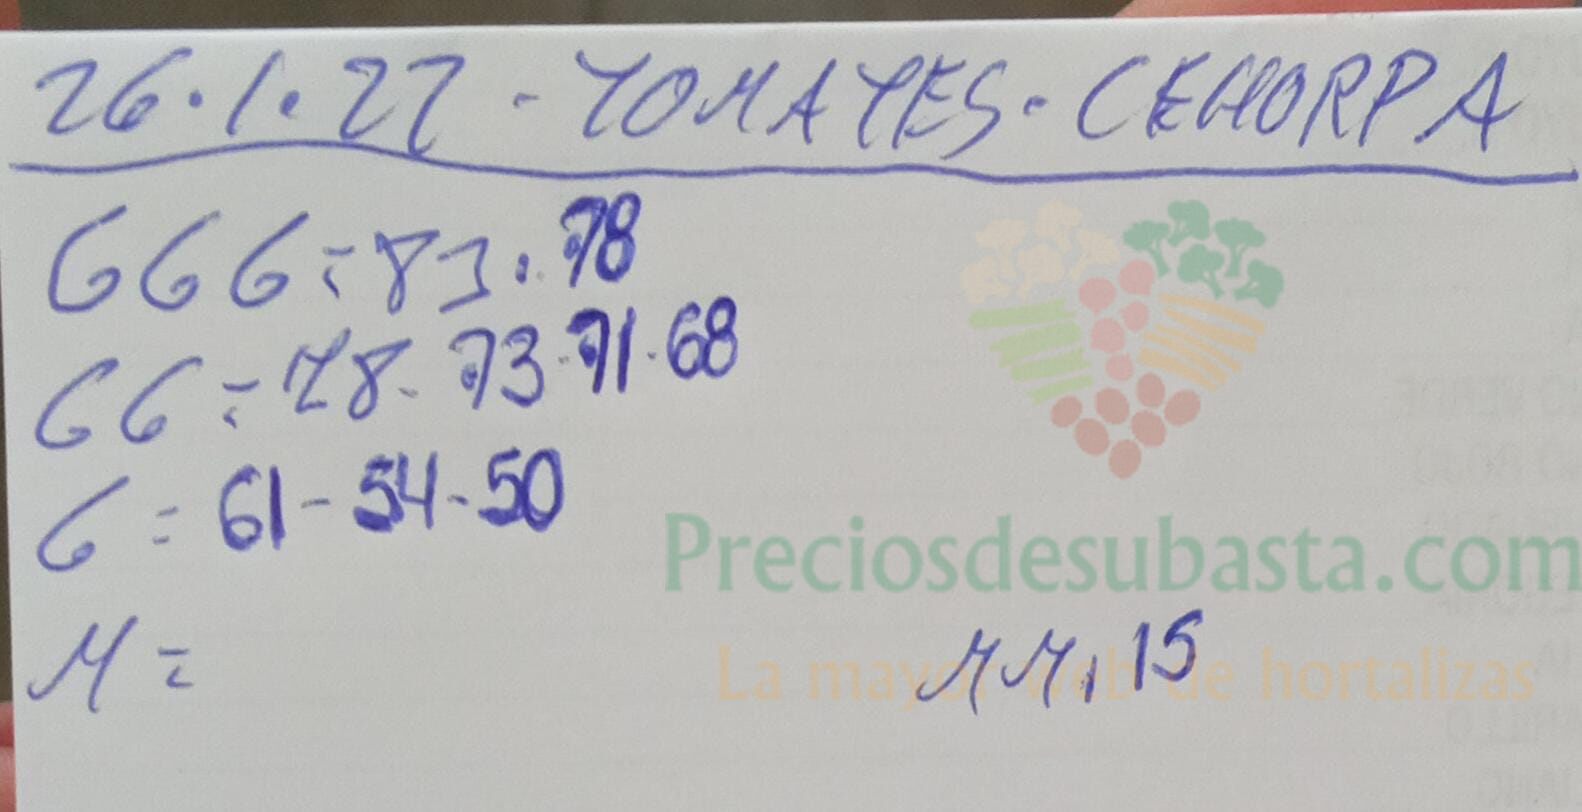 26.1.22 - TOMATES. CEHORPA
GGG = 83. 78
GG = 78- 73-71-68
G = 61-54-50
M =
MM, 15
Preciosdesubasta.com
La mayor web de hortalizas